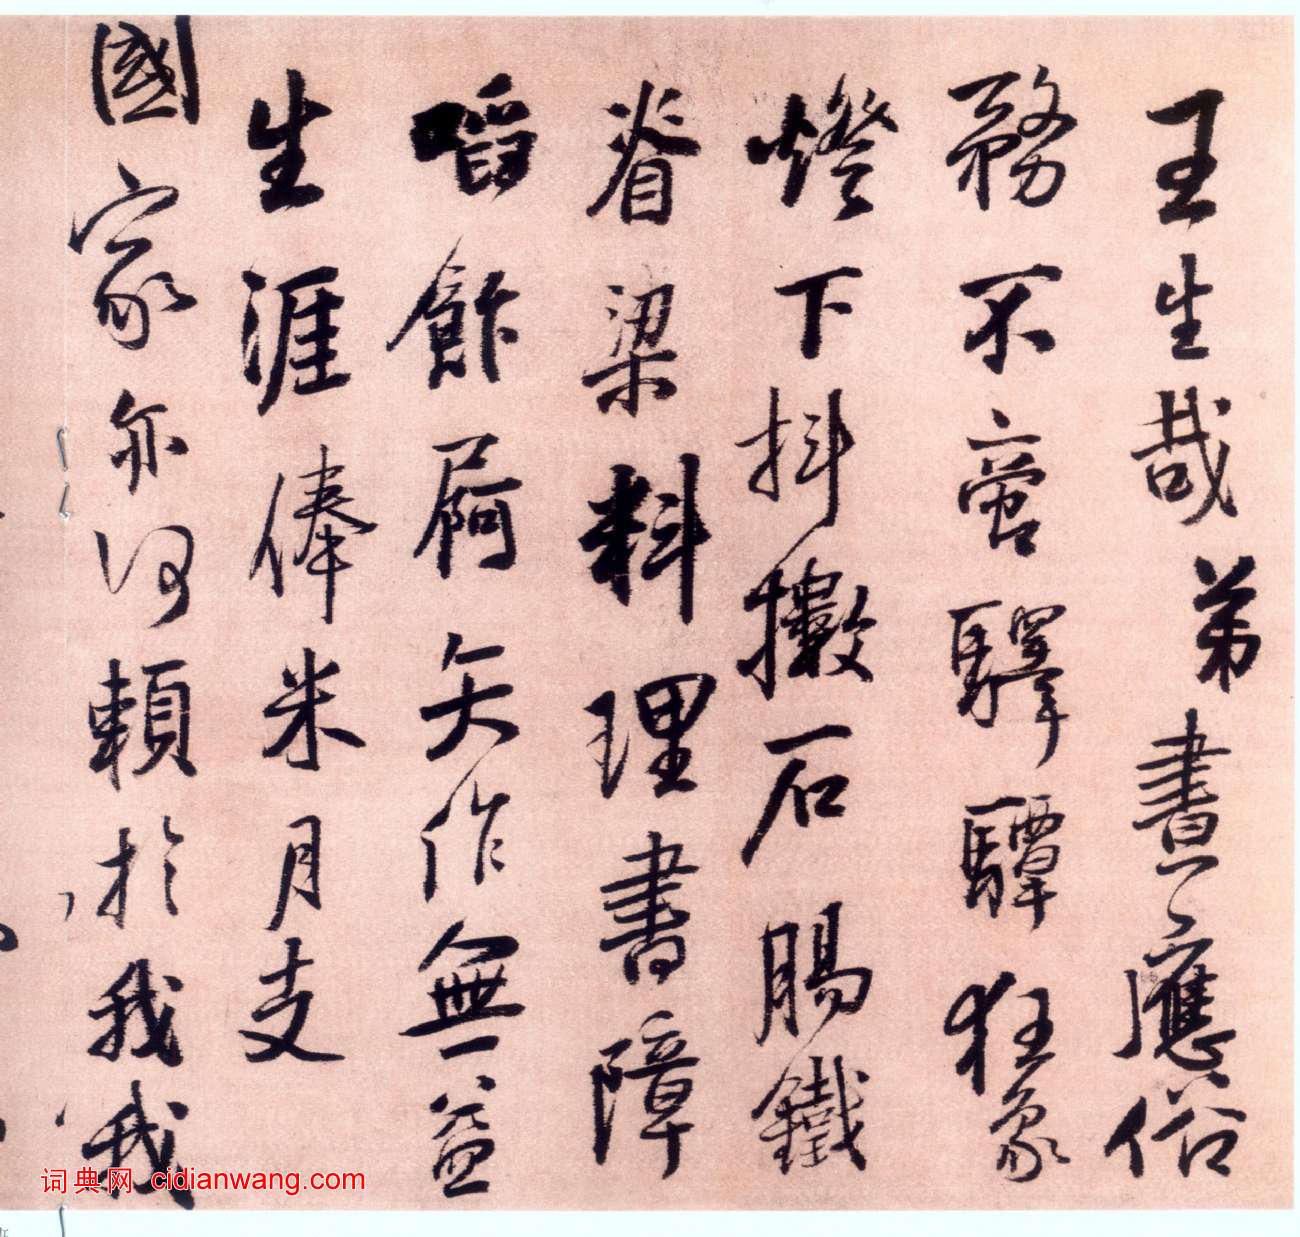 王生哉弟晝應俗
務不啻驛驔狂象
燈下抖擻石腸鐵
脊梁料理書障
啗飰屙矢作無益
生涯俸米月支
國家亦何賴於我我
词典网 cidianwang.com